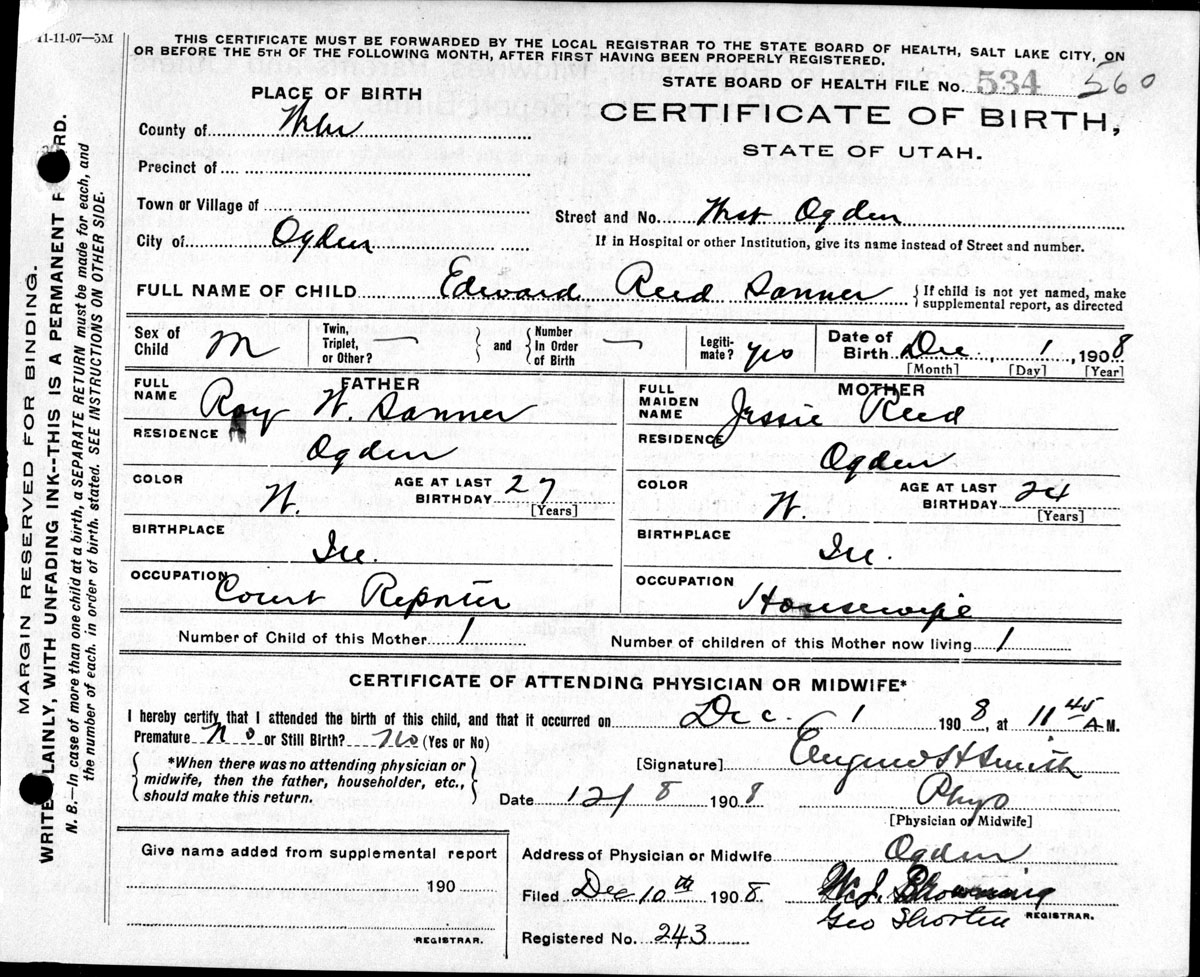 11-11-07—5M
THIS CERTIFICATE MUST BE FORWARDED BY THE LOCAL REGISTRAR TO THE STATE BOARD OF HEALTH, SALT LAKE CITY, ON
OR BEFORE THE 5TH OF THE FOLLOWING MONTH, AFTER FIRST HAVING BEEN PROPERLY REGISTERED.
STATE BOARD OF HEALTH FILE No. 534 560
PLACE OF BIRTH
CERTIFICATE OF BIRTH,
STATE OF UTAH.
County of Weber
Precinct of
Town or Village of
Street and No. West Ogden
City of Ogden
If in Hospital or other Institution, give its name instead of Street and number.
FULL NAME OF CHILD Edward Reed Sanner { If child is not yet named, make
supplemental report, as directed
Sex of Child M
Twin, Triplet, or Other? — } and { Number In Order of Birth —
Legiti- mate? yes
Date of Birth Dec. 1, 1908
[Month] [Day] [Year]
FATHER
FULL NAME Roy W. Sanner
MOTHER
FULL MAIDEN NAME Jessie Reed
RESIDENCE Ogden
RESIDENCE Ogden
COLOR W. AGE AT LAST BIRTHDAY 27 [Years]
COLOR W. AGE AT LAST BIRTHDAY 24 [Years]
BIRTHPLACE Ill.
BIRTHPLACE Ill.
OCCUPATION Court Reporter
OCCUPATION Housewife
Number of Child of this Mother 1
Number of children of this Mother now living 1
CERTIFICATE OF ATTENDING PHYSICIAN OR MIDWIFE*
I hereby certify that I attended the birth of this child, and that it occurred on Dec. 1 1908, at 11 45 A M.
Premature No or Still Birth? No (Yes or No)
{ *When there was no attending physician or
midwife, then the father, householder, etc.,
should make this return. }
[Signature] H Smith
Date 12/8 1908
Phys
[Physician or Midwife]
Give name added from supplemental report
190
REGISTRAR.
Address of Physician or Midwife Ogden
Filed Dec 10th 1908. W. J. Browning
Geo Shorten REGISTRAR.
Registered No. 243
MARGIN RESERVED FOR BINDING.
WRITE LAINLY, WITH UNFADING INK--THIS IS A PERMANENT R RD.
N. B.—In case of more than one child at a birth, a SEPARATE RETURN must be made for each, and
the number of each. in order of birth. stated. SEE INSTRUCTIONS ON OTHER SIDE.